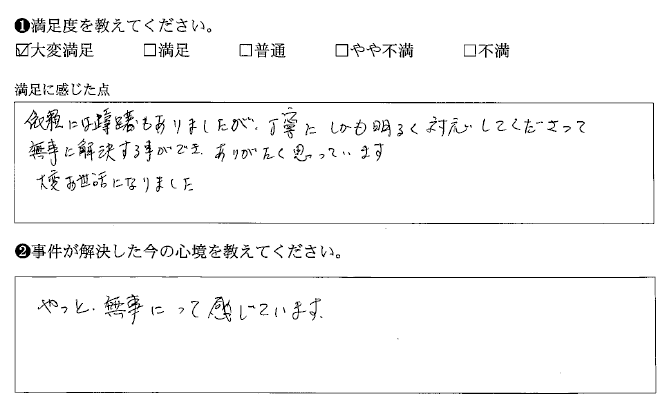 ❶満足度を教えてください。
☑大変満足 □満足 □普通 □やや不満 □不満
満足に感じた点
依頼には躊躇もありましたが、丁寧に しかも明るく 対応してくださって
無事に解決する事ができ、ありがたく思っています
大変お世話になりました
❷事件が解決した今の心境を教えてください。
やっと、無事にって感じています。